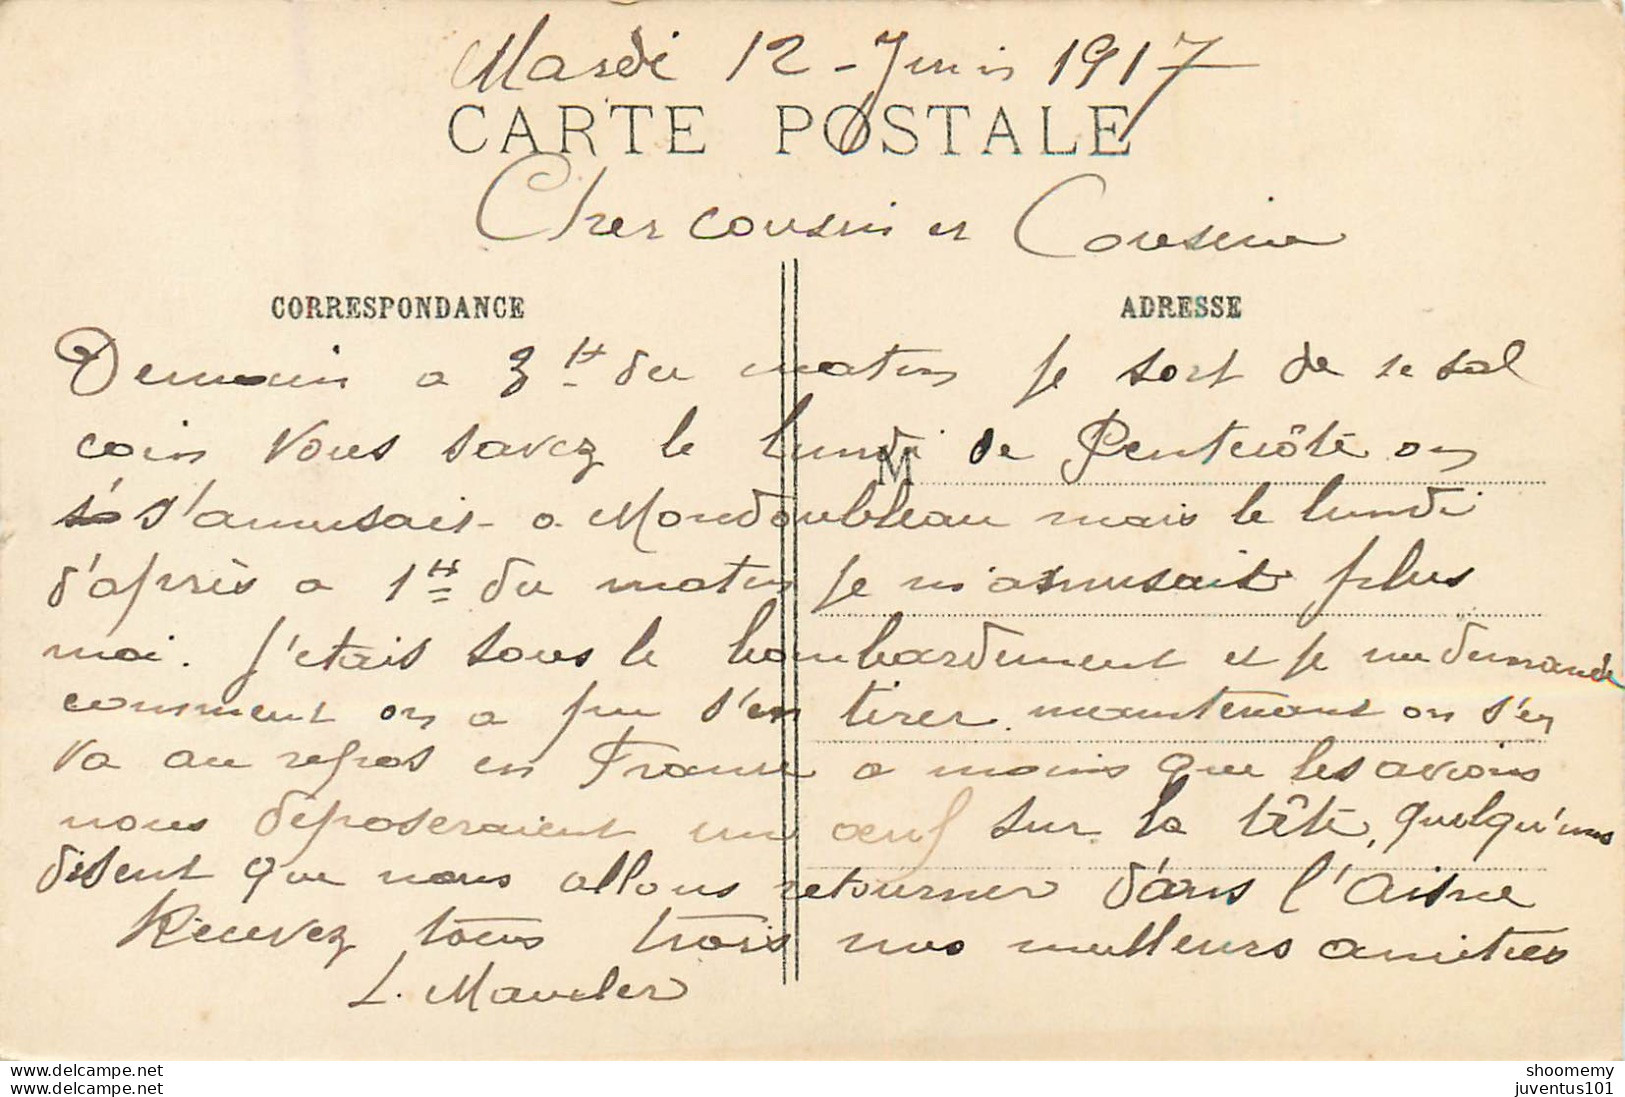 Mardi 12 - Juin 1917
CARTE POSTALE
Cher cousin et Cousine
CORRESPONDANCE
ADRESSE
Demain a 3 H du matin je sort de se sal
coin Vous savez le lundi de Pentecôte on
s'amusait a Mondoubleau mais le lundi
d'après a 1 H du matin je m'amusait plus
moi. J'étais sous le bombardement et je me demande
comment on a pu s'en tirer. maintenant on s'en
va au repos en France a moins que les avions
nous déposeraient un œuf sur la tête, quelqu'uns
disent que nous allons retourner dans l'Aisne
Recevez tous trois nos meilleurs amitiés
L.
M
shoomemy
juventus101
www.delcampe.net
www.delcampe.net